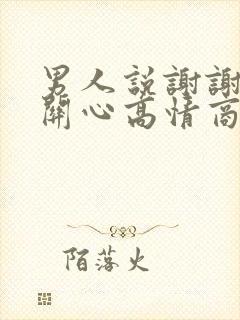 男人説謝謝
関心高情商
陌落火